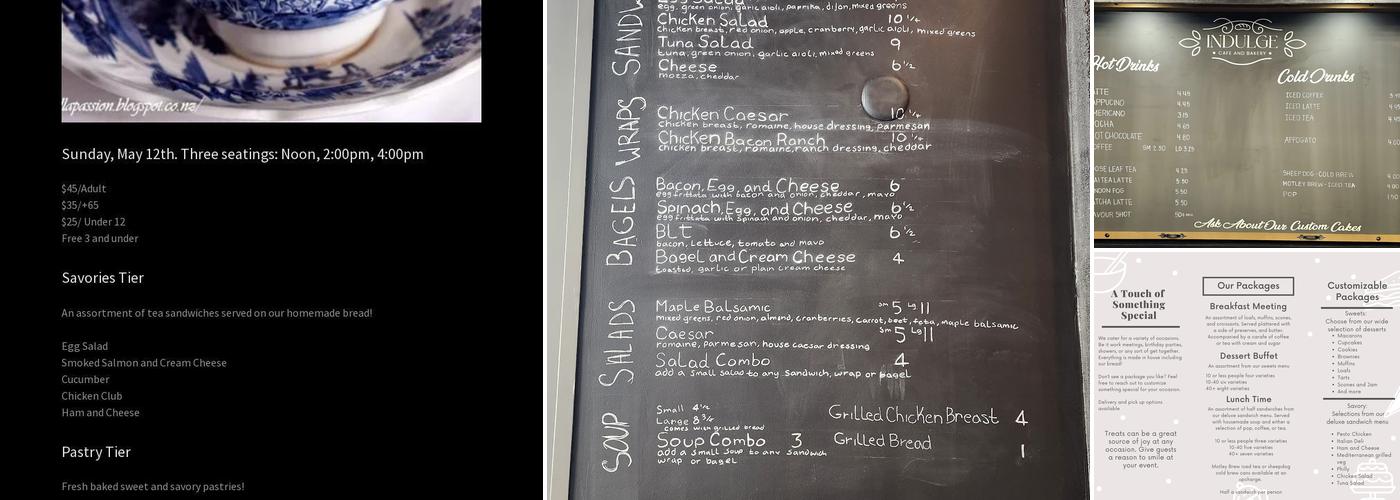 llapassion.blogspot.co.nz/
Sunday, May 12th. Three seatings: Noon, 2:00pm, 4:00pm
$45/Adult
$35/+65
$25/ Under 12
Free 3 and under
Savories Tier
An assortment of tea sandwiches served on our homemade bread!
Egg Salad
Smoked Salmon and Cream Cheese
Cucumber
Chicken Club
Ham and Cheese
Pastry Tier
Fresh baked sweet and savory pastries!
SANDW
egg, green onion, garlic aioli, paprika, dijon, mixed greens
Chicken Salad 10 1/4
chicken breast, red onion, apple, cranberry, garlic aioli, mixed greens
Tuna Salad 9
tuna, green onion, garlic aioli, mixed greens
Cheese 6 1/2
mozza, cheddar
WRAPS
Chicken Caesar 10 1/4
chicken breast, romaine, house dressing, parmesan
Chicken Bacon Ranch 10 1/4
chicken breast, romaine, ranch dressing, cheddar
BAGELS
Bacon, Egg, and Cheese 6
egg frittata with bacon and onion, cheddar, mayo
Spinach, Egg, and Cheese 6 1/2
egg frittata with spinach and onion, cheddar, mayo
BLt 6 1/2
bacon, lettuce, tomato and mayo
Bagel and Cream Cheese 4
toasted, garlic or plain cream cheese
SALADS
Maple Balsamic sm 5 Lg 11
mixed greens, red onion, almond, cranberries, carrot, beet, feta, maple balsamic
Caesar sm 5 Lg 11
romaine, parmesan, house caesar dressing
Salad Combo 4
add a small salad to any sandwich, wrap or bagel
SOUP
Small 4 1/2
Large 8 3/4
comes with grilled bread
Soup Combo 3
add a small soup to any sandwich
wrap or bagel
Grilled Chicken Breast 4
Grilled Bread 1
INDULGE
CAFE AND BAKERY
Hot Drinks
ATTE 4.45
APPUCINO 4.45
MERICANO 3.15
OCHA 4.60
OT CHOCOLATE 4.80
OFFEE SM 2.50 LG 3.15
OOSE LEAF TEA 4.15
HAI TEA LATTE 5.50
NDON FOG 5.50
ATCHA LATTE 5.50
AVOUR SHOT
Cold Drinks
ICED COFFEE
ICED LATTE
ICED TEA
AFFOGATO
SHEEPDOG-COLD BREW
MOTLEY BREW-ICED TEA
POP
Ask About Our Custom Cakes
A Touch of
Something
Special
We cater for a variety of occasions.
Be it work meetings, birthday parties,
showers, or any sort of get together.
Everything is made in house including
our bread!
Don't see a package you like? Feel
free to reach out to customize
something special for your occasion.
Delivery and pick up options
available
Treats can be a great
source of joy at any
occasion. Give guests
a reason to smile at
your event.
Our Packages
Breakfast Meeting
An assortment of loafs, muffins, scones,
and croissants. Served plattered with
a side of preserves, and butter.
Accompanied by a carafe of coffee
or tea with cream and sugar
Dessert Buffet
An assortment from our sweets menu
10 or less people four varieties
10-40 six varieties
40+ eight varieties
Lunch Time
An assortment of half sandwiches from
our deluxe sandwich menu. Served
with housemade soup and either a
selection of pop, coffee, or tea.
10 or less people three varieties
10-40 five varieties
40+ seven varieties
Motley Brew iced tea or sheepdog
cold brew cans available at an
upcharge.
Half a sandwich per person
Customizable
Packages
Sweets:
Choose from our wide
selection of desserts
• Macarons
• Cupcakes
• Cookies
• Brownies
• Muffins
• Loafs
• Tarts
• Scones and Jam
• And more
Savory:
Selections from our
deluxe sandwich menu
• Pesto Chicken
• Italian Deli
• Ham and Cheese
• Mediterranean grilled
veg
• Philly
• Chicken Salad
• Tuna Salad